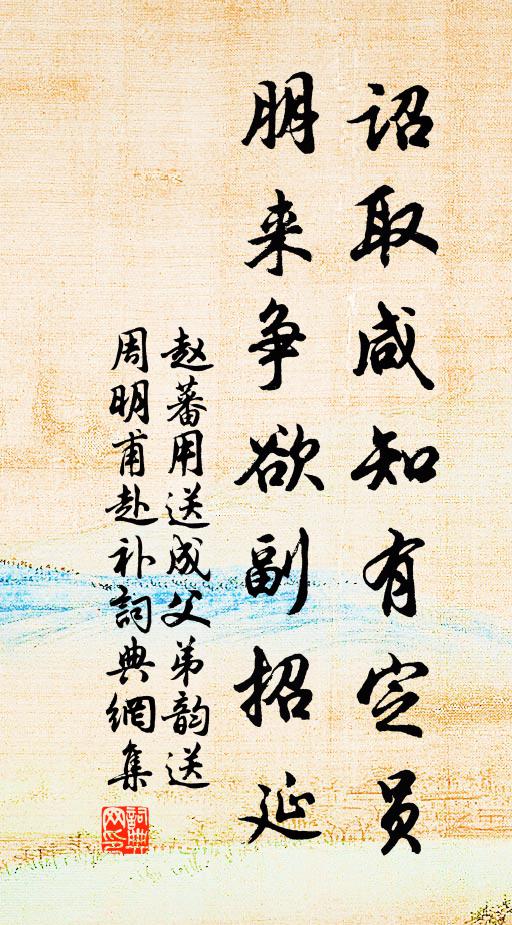 诏取咸知有定员
朋来争欲副招延
赵蕃用送成父弟韵送
周明甫赴补詞典網集
詞典网印